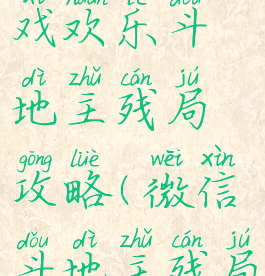 xì huān lè dòu
戏欢乐斗
dì zhǔ cán jú
地主残局
gōng lüè wēi xìn
攻略(微信
dòu dì zhǔ cán jú
斗地主残局